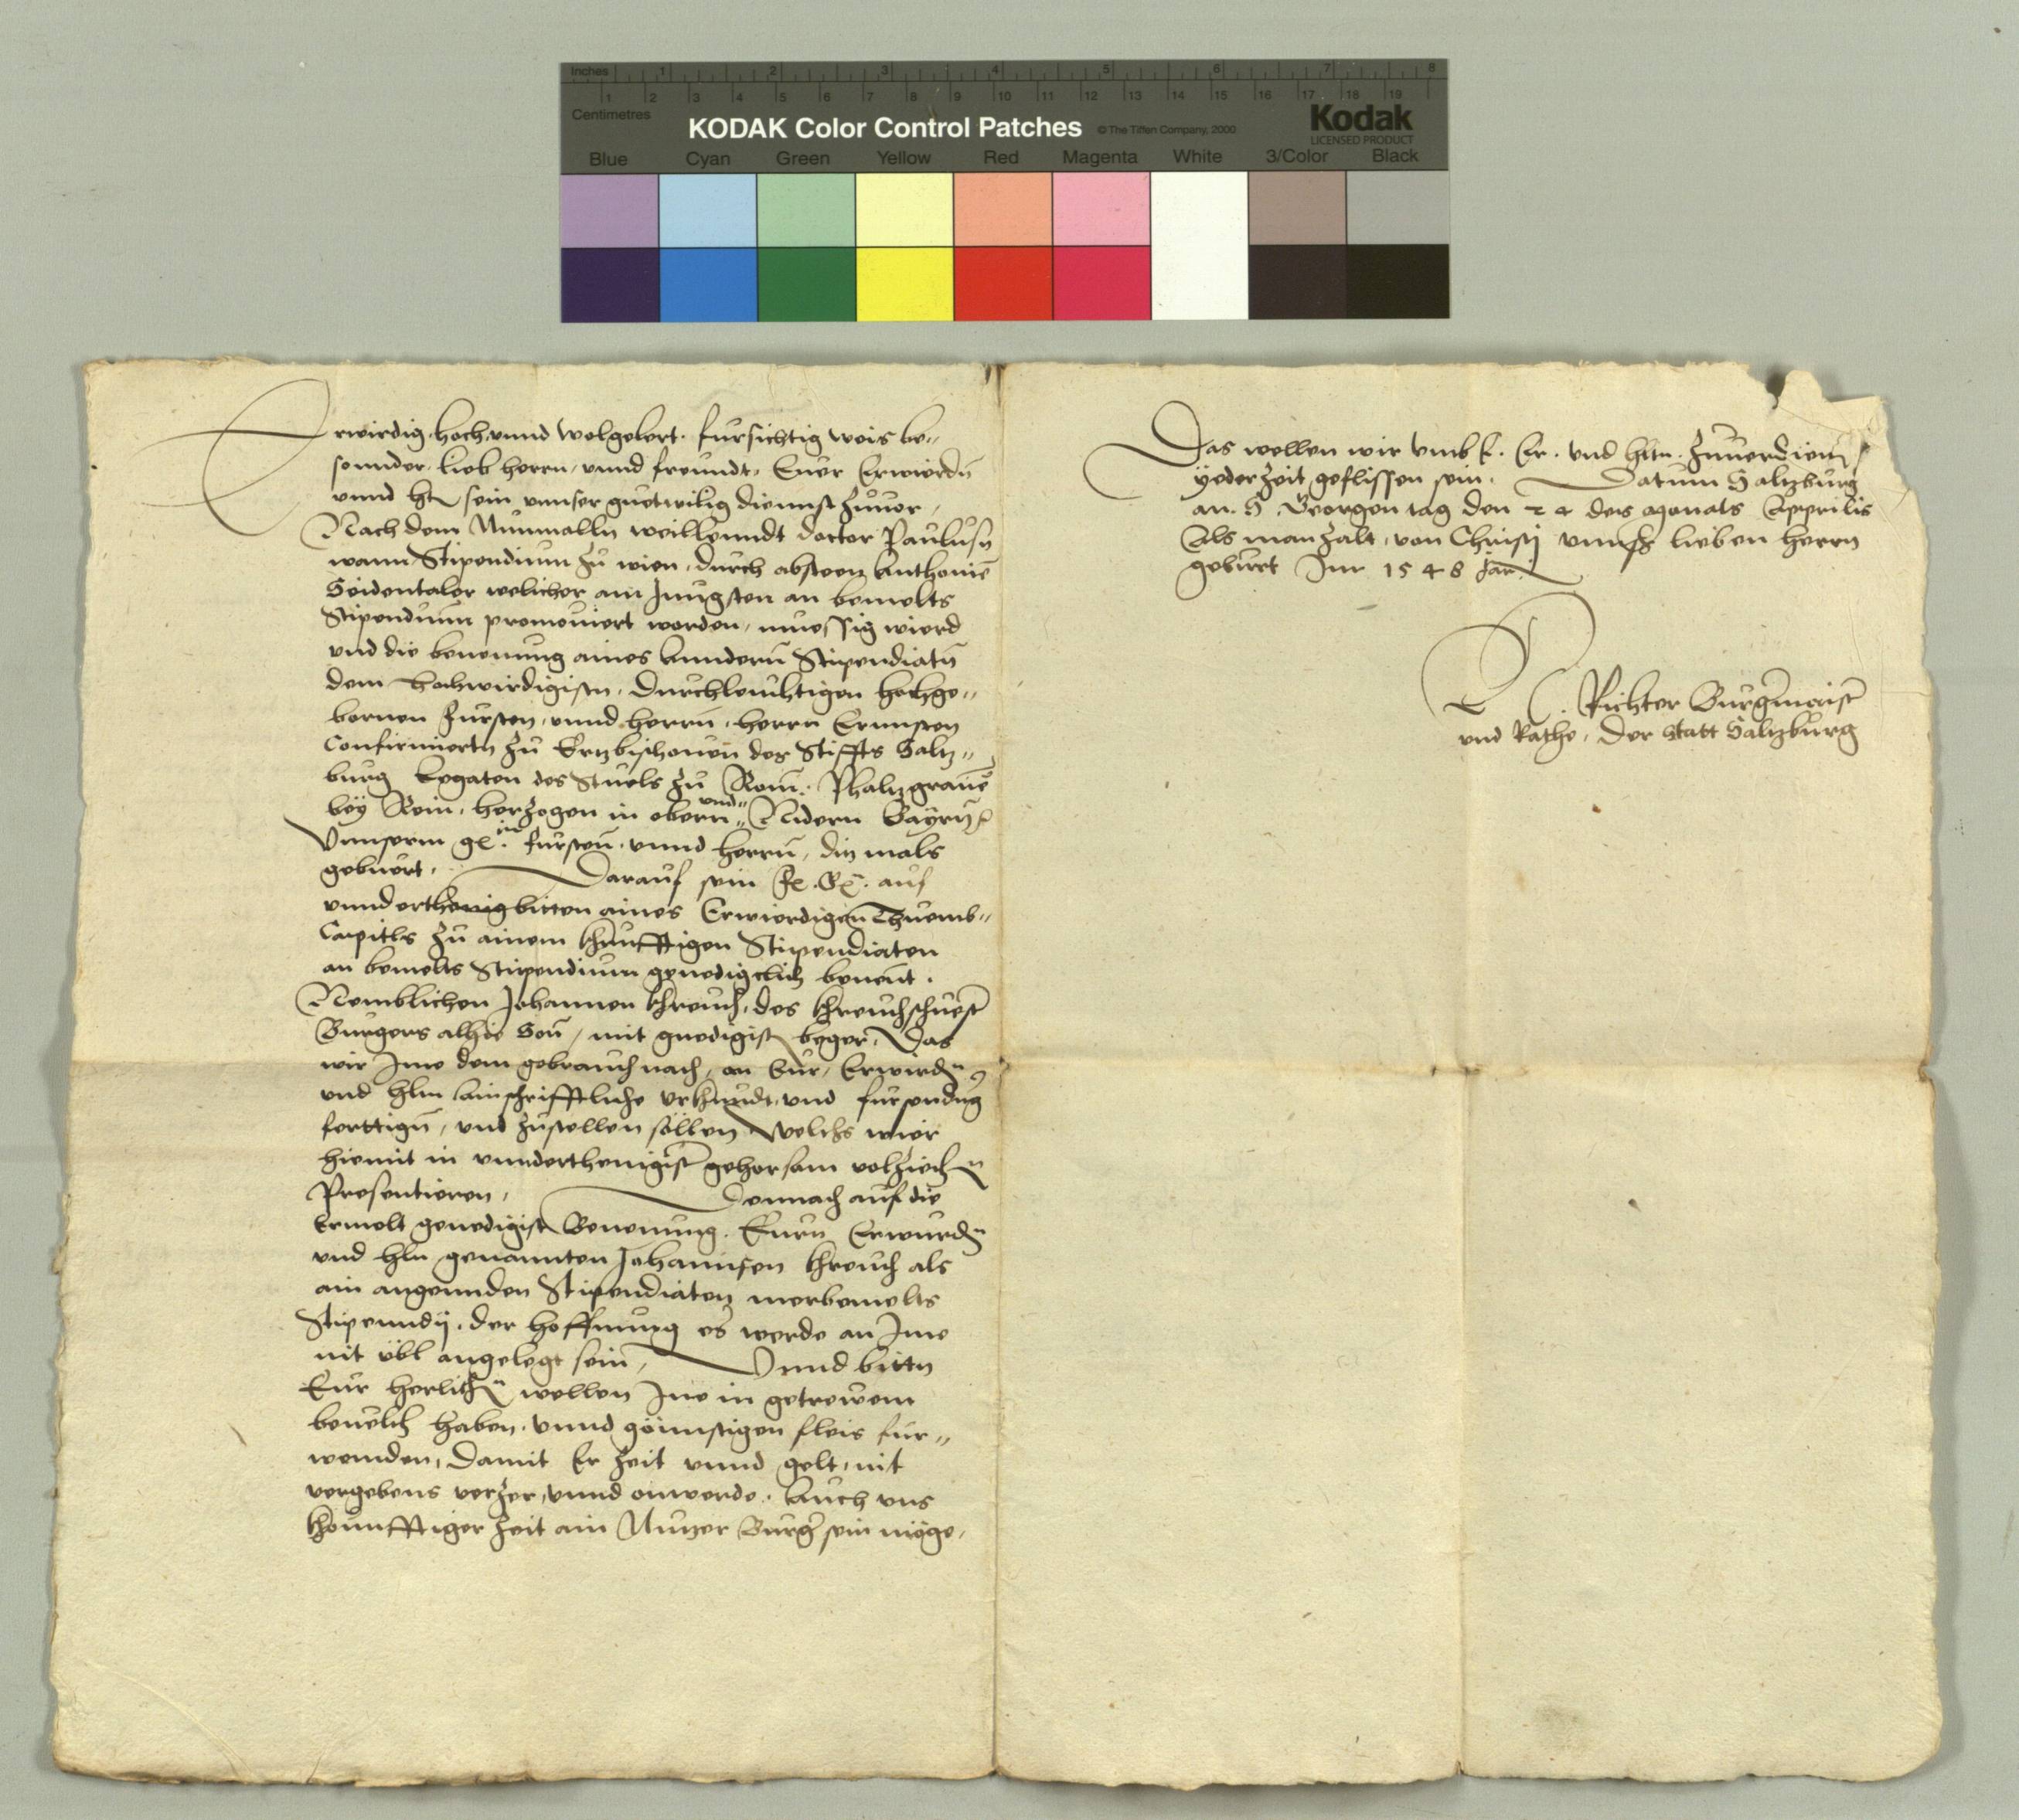 Inches 1 2 3 4 5 6 7 8
1 2 3 4 5 6 7 8 9 10 11 12 13 14 15 16 17 18 19
Centimetres
KODAK Color Control Patches © The Tiffen Company, 2000 Kodak
LICENSED PRODUCT
Blue Cyan Green Yellow Red Magenta White 3/Color Black
Erwirdig, hoch, unnd wolgelert. fursichtig weis be„
sonnder. lieb herrn, unnd freundt, Euer Erwierdn̄
unnd sein unnser guetwilig diennst zuuor,
Nach dem Nunmalln weillenndt doctor Paulusn
wann Stipendium zu wien, durch absteen Anthonien̄
Seidentaler welicher am Jungsten an bemelts
Stipendium promouiert worden, muessig wierd
und die benennung aines anndern̄ Stipendiatn̄
dem hochwirdigistn, durchleuchtigen hochge„
bornen Fursten, unnd herrn̄, herrn Ernnsten
Confirmiertn zu Ertzbischouen̄ des Stiffts Saltz„
burg Legaten des Stuels zu Rom̄. Phaltzgrauen̄
bey Rein, hertzogen in obern„ und„ Nidern Bayrn̄
Unnserm gē. fursten̄. unnd herrn̄, ditz mals
gebuert. Darauf sein F. G. auf
unnderthenig bitten aines Erwierdigen Thuemb„
Capitls zu ainem khunfftigen Stipendiaten
an bemelts Stipendium genedigclich benent.
Nemblichen Johannen khreuch, des khreuchschuestr
Burgers alhie Son̄, mit gnedigist beger, Das
wir Ime dem gebrauch nach, an Eur, Erwirdn
und hlm ain schrifftliche urkhundt, und fursendung
ferttign̄, und zustellen sollen Welichs wier
hiemit in unnderthenigistr gehorsam volziechn
Presentieren, Demnach auf die
Ermelt genedigist Benennung. Eurn Erwurdn
und hlm genannten Johannsen khreuch als
ain angeenden Stipendiaten merbemelts
Stipenndij. der hoffnung es werde an Ime
nit ubl angelegt sein, Unnd bittn
Eur herlichn wellen Ine in getrewem
beuelch haben. unnd gönnstigen fleis fur„
wennden, Damit Er zeit unnd gelt, nit
vergebens verzer, unnd onwerde. Auch uns
khounfftiger zeit ain Nutzer Burger sein möge,
Das wellen wir umb E. Er. und hlm. zuuerdienn
yeder zeit geflissen sein. Datum Saltzburg
an. S. Georgen tag den 24 des Monats Apprilis
Als man zalt, von Christj unnsers lieben herrn
geburt Im 1548 Jar.
E. Richter Burgermaister
und Rathe, der Statt Saltzburg